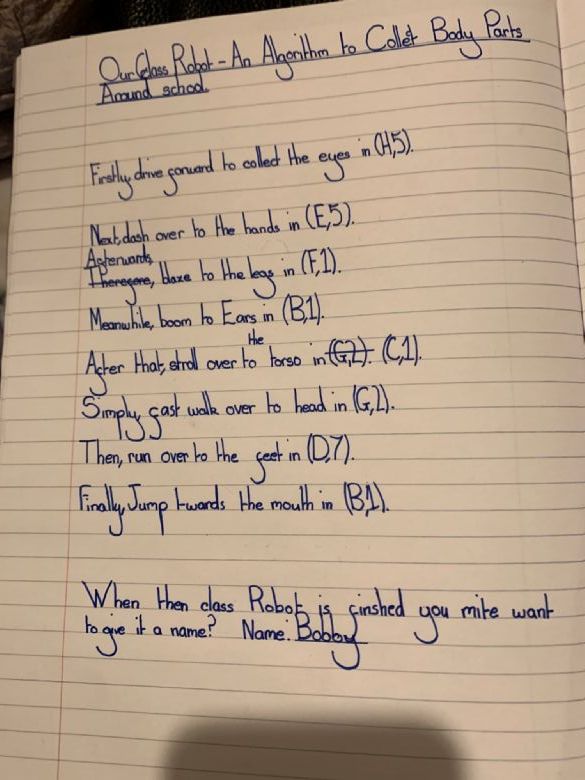 Our Class Robot - An Algorithm to Collet Body Parts
Around school.
Firstly, drive forward to collect the eyes in (H,5).
Next, dash over to the hands in (E,5).
Afterwards
Therefore, blaxe to the legs in (F,1).
Meanwhile, boom to Ears in (B,1).
the
After that, stroll over to torso in (G,2). (C,1).
Simply, fast walk over to head in (G,2).
Then, run over to the feet in (D,7).
Finally, Jump twards the mouth in (B,1).
When then class Robot is finshed you mite want
to give it a name? Name: Bobby